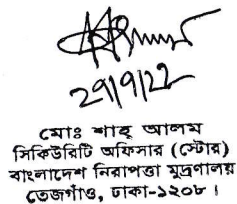 ২৭/৭/২২
মোঃ শাহ্ আলম
সিকিউরিটি অফিসার (স্টোর)
বাংলাদেশ নিরাপত্তা মুদ্রণালয়
তেজগাঁও, ঢাকা-১২০৮।